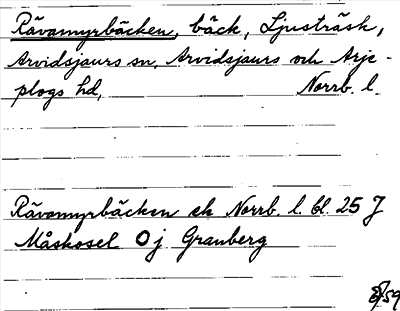 Rävamyrbäcken, bäck, Ljusträsk,
Arvidsjaurs sn, Arvidsjaurs och Arje-
plogs hd, Norrb. l.
Rävamyrbäcken ek Norrb. l. bl. 25 J
Måskosel O j Granberg
59